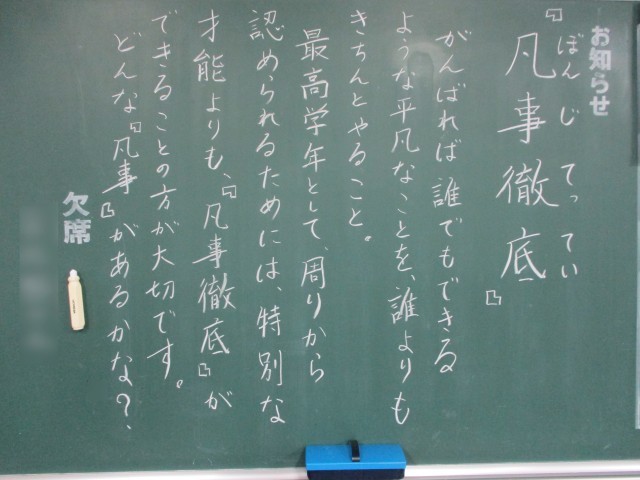 お知らせ
ぼんじてってい
『凡事徹底』
がんばれば誰でもできる
ような平凡なことを、誰よりも
きちんとやること。
最高学年として、周りから
認められるためには、特別な
才能よりも、『凡事徹底』が
できることの方が大切です。
どんな『凡事』があるかな？
欠席